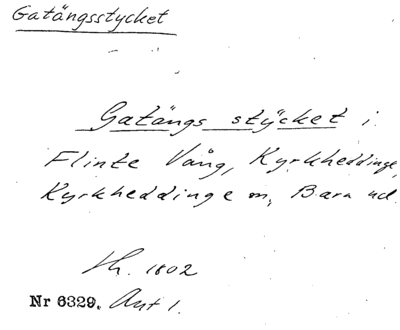 Gatängsstycket
Gatängs stÿcket i
Flinte Vång, Kyrkheddinge,
Kyrkheddinge sn, Bara hd.
Lh. 1802
Nr 6329. Akt 1.